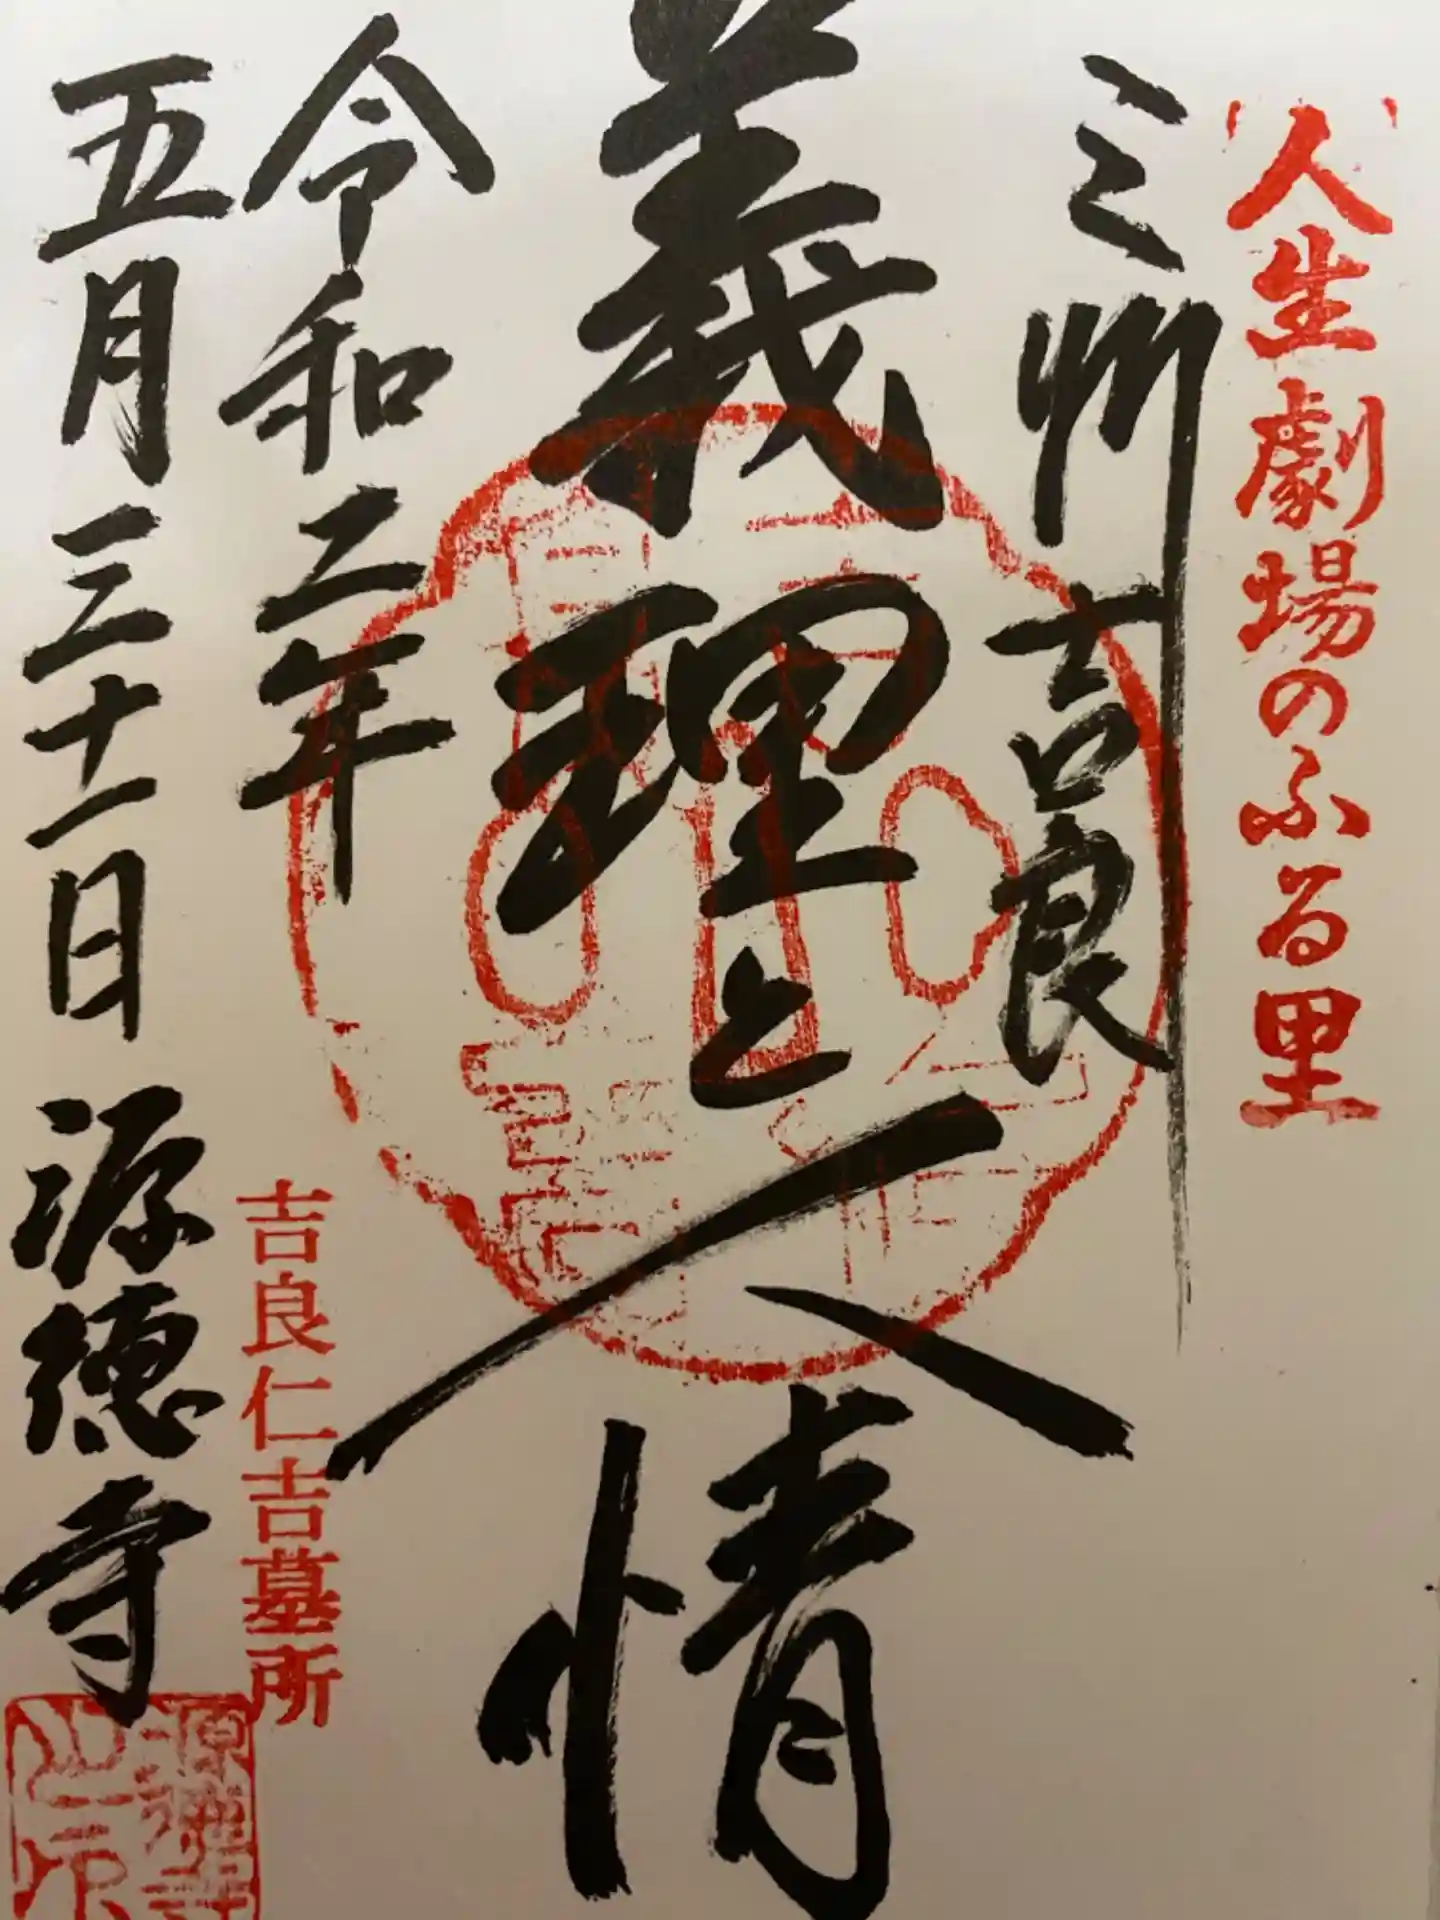 人生劇場のふる里
三州吉良
義理と人情
令和二年
五月三十一日 源徳寺
吉良仁吉墓所
源徳寺